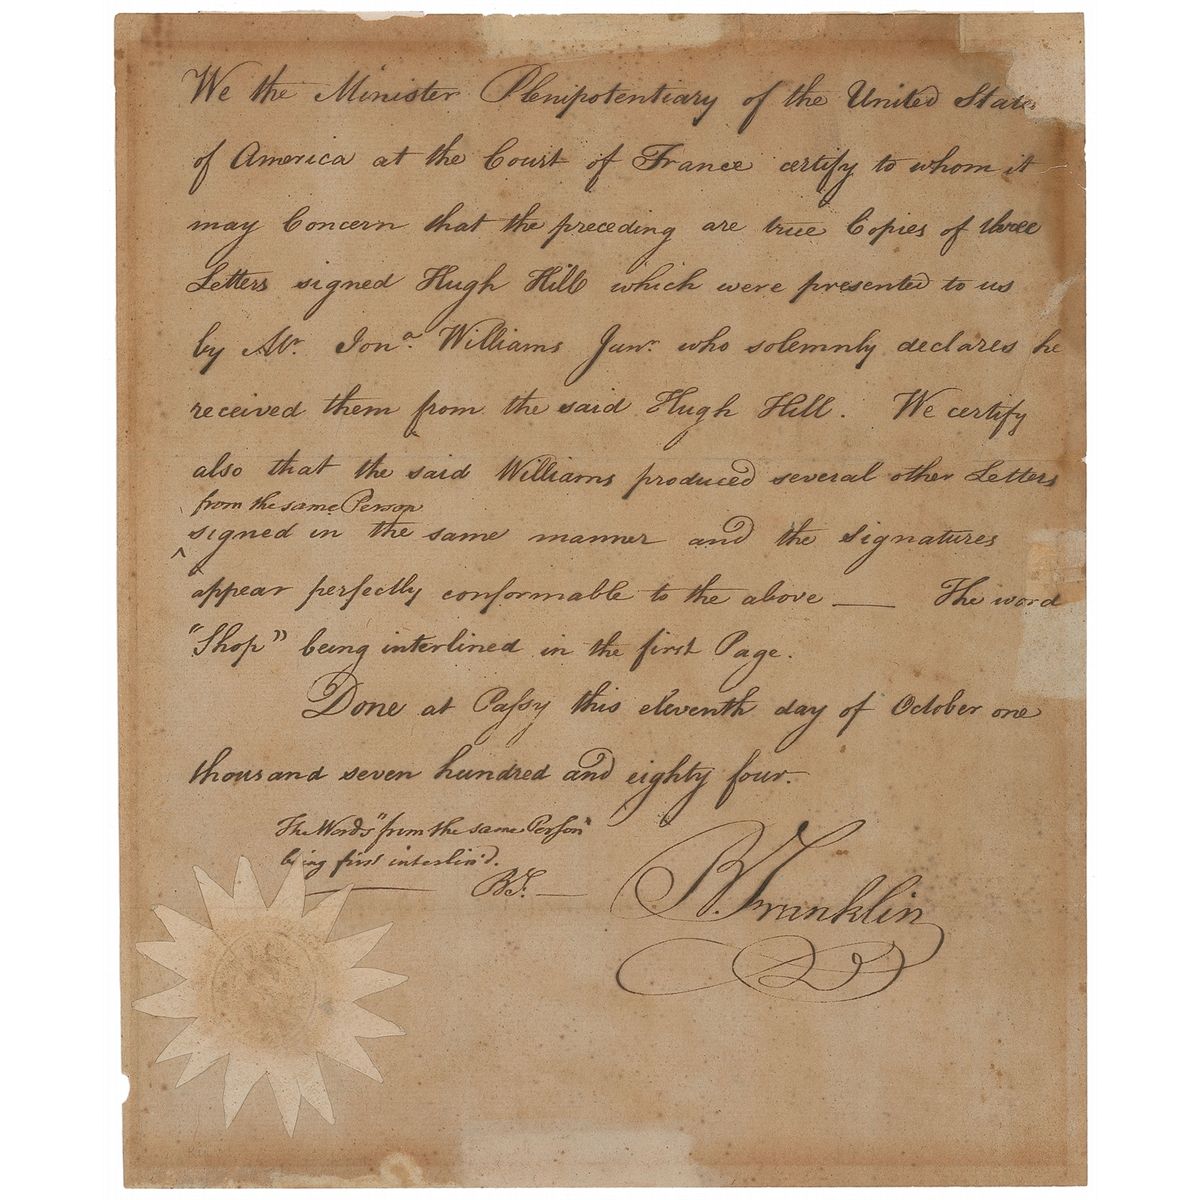 We the Minister Plenipotentiary of the United States
of America at the Court of France certify to whom it
may Concern that the preceding are true Copies of three
Letters signed Hugh Hill which were presented to us
by Mr. Jona. Williams Junr. who solemnly declares he
received them from the said Hugh Hill. We certify
also that the said Williams produced several other Letters
from the same Person
signed in the same manner and the signatures
^
appear perfectly conformable to the above — The word
"Shop" being interlined in the first Page.
Done at Paſsy this eleventh day of October one
thousand seven hundred and eighty four.
The Words "from the same Person"
being first interlin'd.
BF. —
B. Franklin